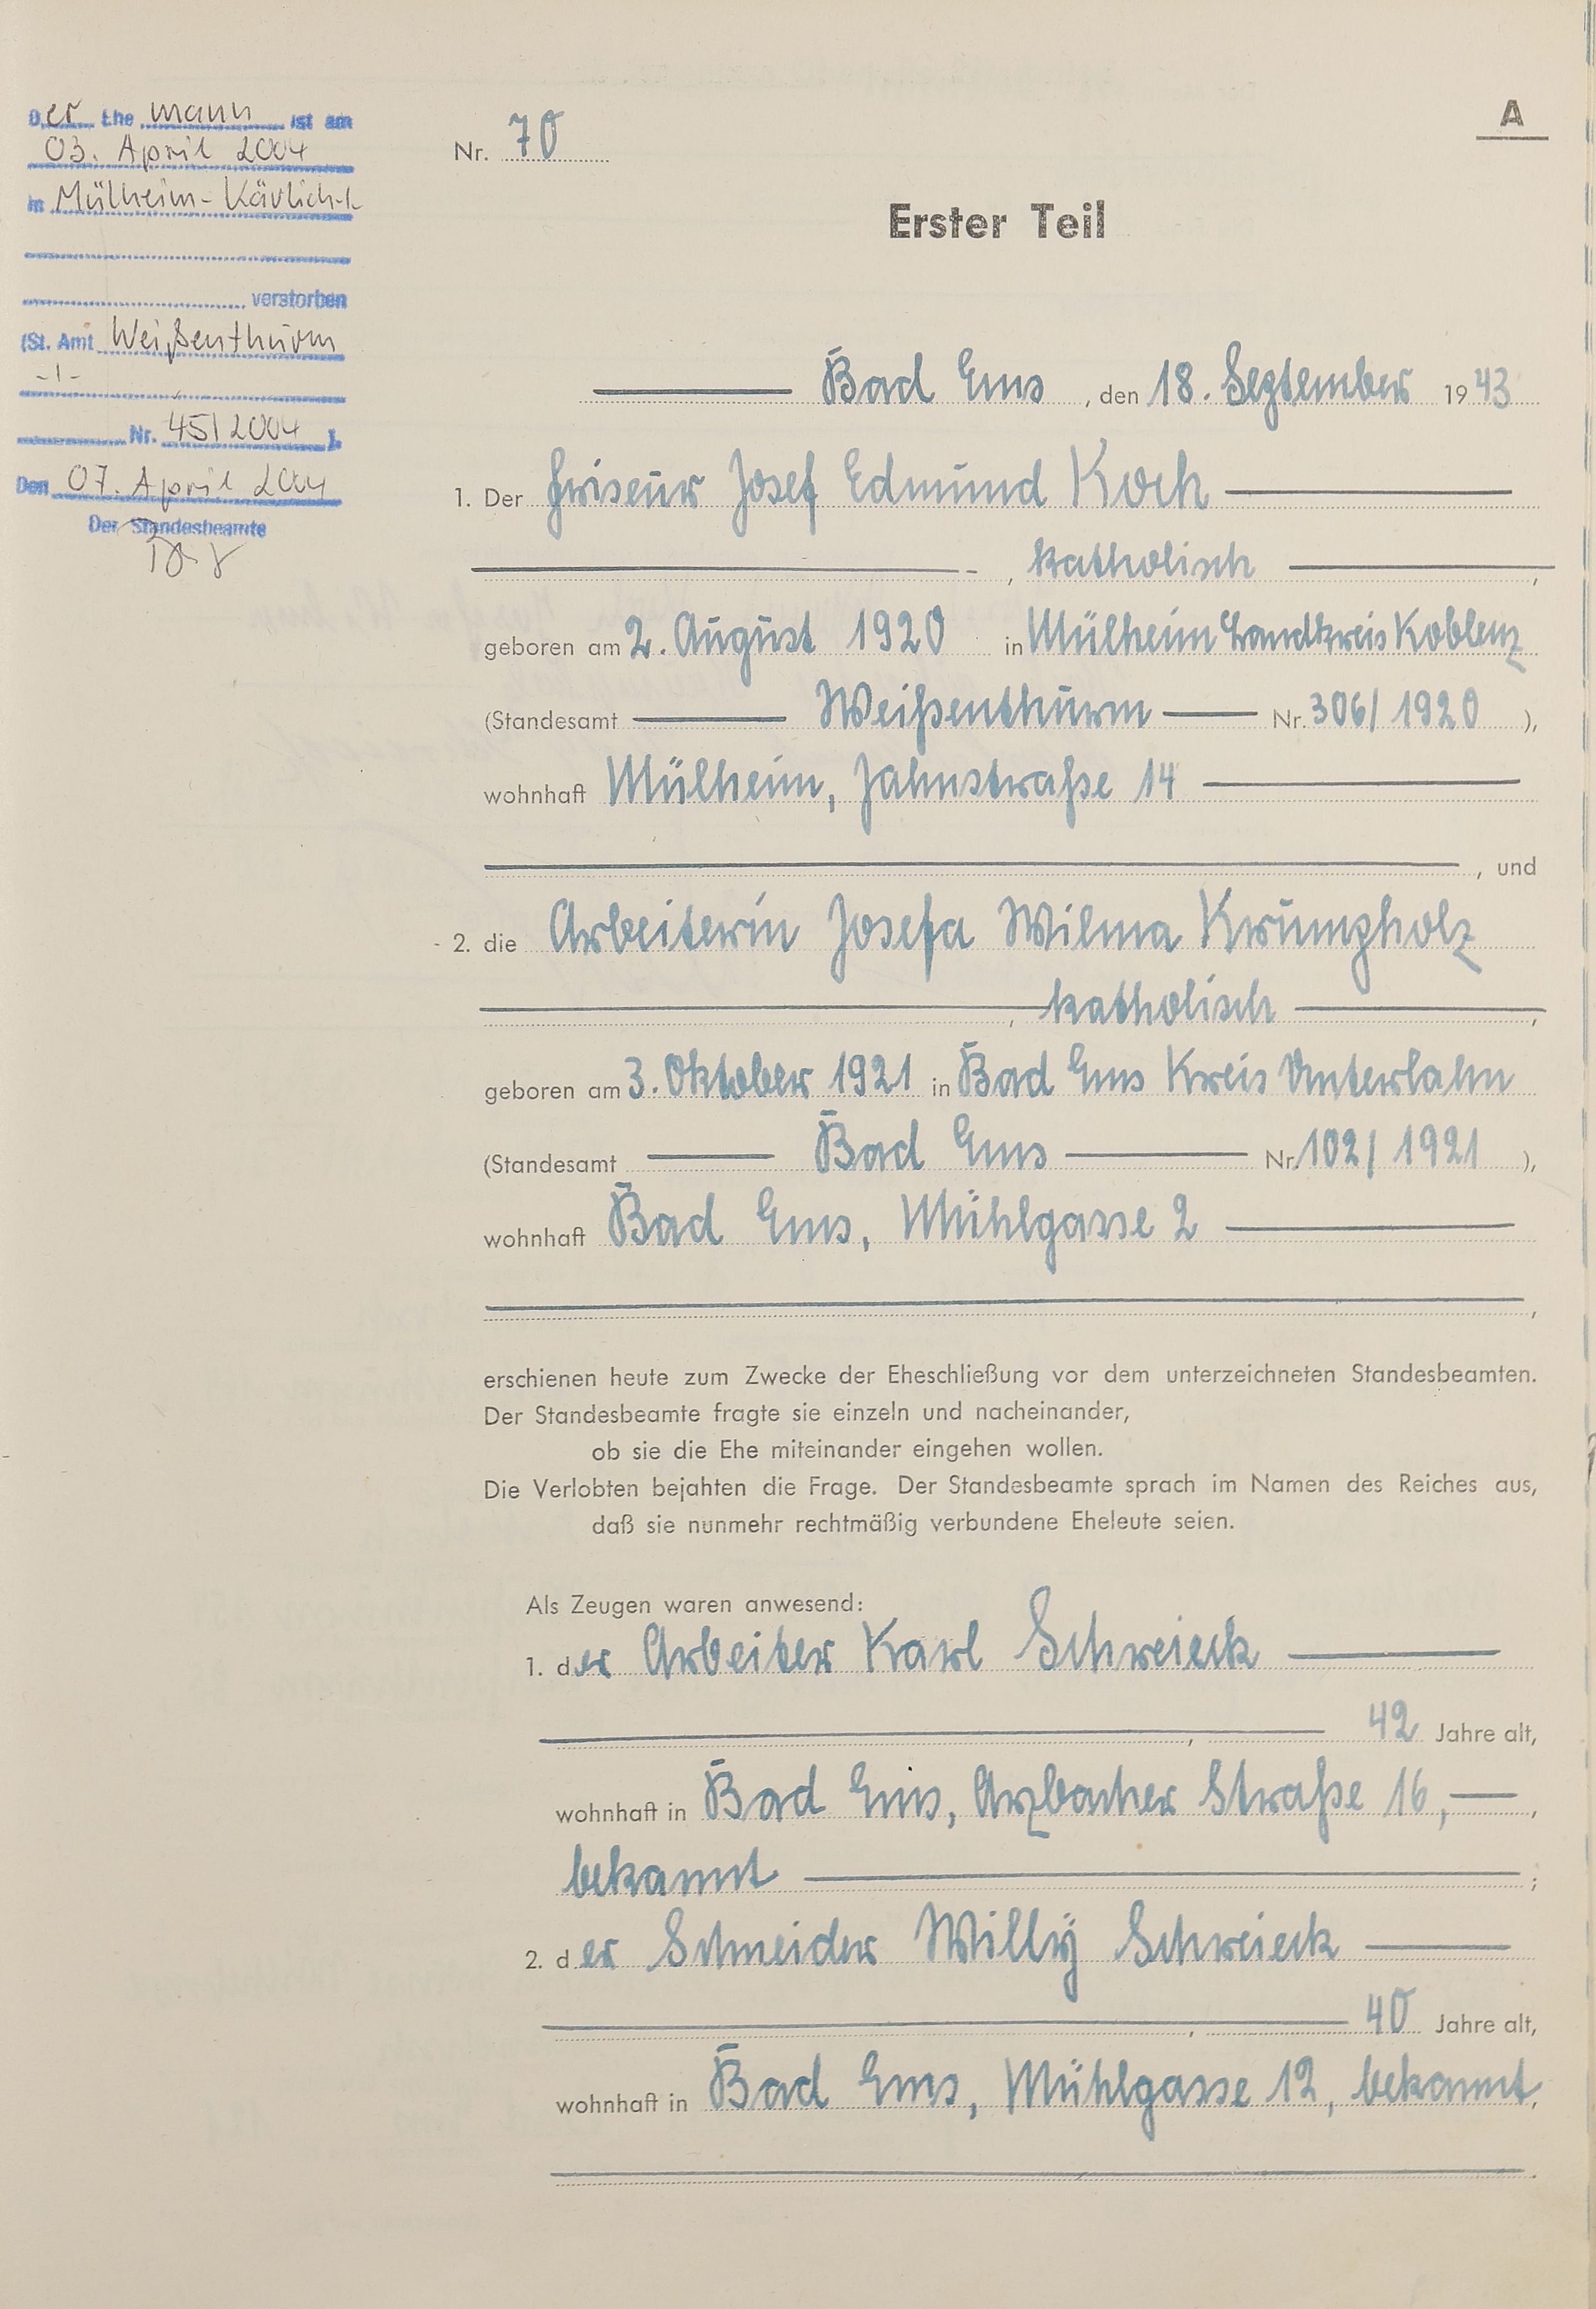 Der Ehe mann ist am
03. April 2004
in Mülheim-Kärlich
verstorben
(St. Amt Weißenthurm
-1-
Nr. 45/2004 ).
Den 07. April 2004
Der Standesbeamte
A
Nr. 70
Erster Teil
Bad Ems, den 18. September 1943
1. Der Friseur Josef Edmund Koch
, katholisch ,
geboren am 2. August 1920 in Mülheim Landkreis Koblenz
(Standesamt Weißenthurm Nr. 306/1920 ),
wohnhaft Mülheim, Jahnstraße 14
, und
2. die Arbeiterin Josefa Wilma Krümpholz
, katholisch ,
geboren am 3. Oktober 1921 in Bad Ems Kreis Unterlahn
(Standesamt Bad Ems Nr. 102/1921 ),
wohnhaft Bad Ems, Mühlgasse 2
,
erschienen heute zum Zwecke der Eheschließung vor dem unterzeichneten Standesbeamten.
Der Standesbeamte fragte sie einzeln und nacheinander,
ob sie die Ehe miteinander eingehen wollen.
Die Verlobten bejahten die Frage. Der Standesbeamte sprach im Namen des Reiches aus,
daß sie nunmehr rechtmäßig verbundene Eheleute seien.
Als Zeugen waren anwesend:
1. der Arbeiter Karl Schweieck
, 42 Jahre alt,
wohnhaft in Bad Ems, Arzbacher Straße 16, ,
bekannt ;
2. der Schneider Willy Schweieck
, 40 Jahre alt,
wohnhaft in Bad Ems, Mühlgasse 12, bekannt,
.